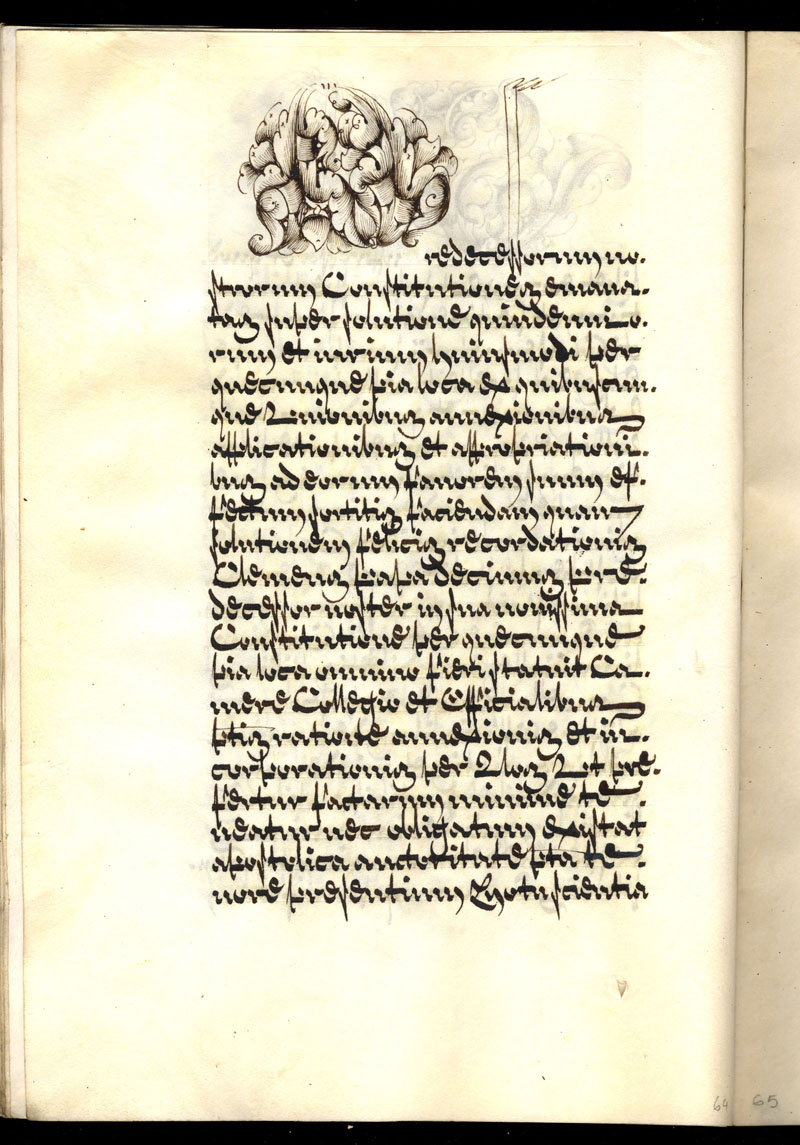 redecessorum no.
strorum Constitutiones emana.
tas super solutione quindennio.
rum et iurium huiusmodi per
quecunque pia loca ex quibuscun.
que Unionibus annexionibus
applicationibus et appropriationi.
bus ad eorum favorem suum ef.
fectum sortitis faciendam quam
solutionem felicis recordationis
Clemens papa decimus pre.
decessor noster in sua novissima
Constitutione per quecunque
pia loca omnino fieri statuit Ca.
mere Collegio et Officialibus
ptis ratione annexionis et in.
corporationis per Illas Ut pre.
fertur factarum minime te.
neatur nec obligatum existat
apostolica auctoritate pta te.
nore presentium Motu scientia
64 65